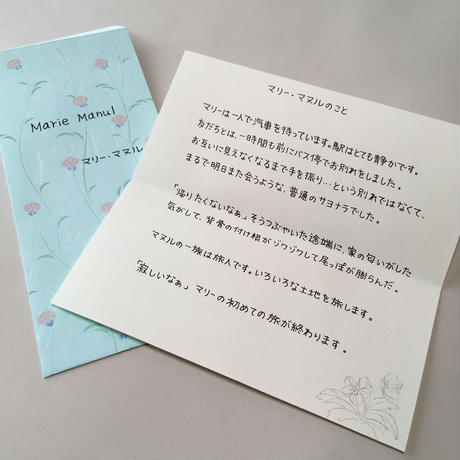 Marie Manul
マリー・マヌル
マリー・マヌルのこと
マリーは一人で汽車を待っています。駅はとても静かです。
友だちとは、一時間も前にバス停でお別れをしました。
お互いに見えなくなるまで手を振り…という別れではなくて、
まるで明日また会うような、普通のサヨナラでした。
「帰りたくないなぁ」そうつぶやいた途端に、家の匂いがした
気がして、背骨の付け根がゾワゾワして尾っぽが膨らんだ。
マヌルの一族は旅人です。いろいろな土地を旅します。
「寂しいなぁ」マリーの初めての旅が終わります。